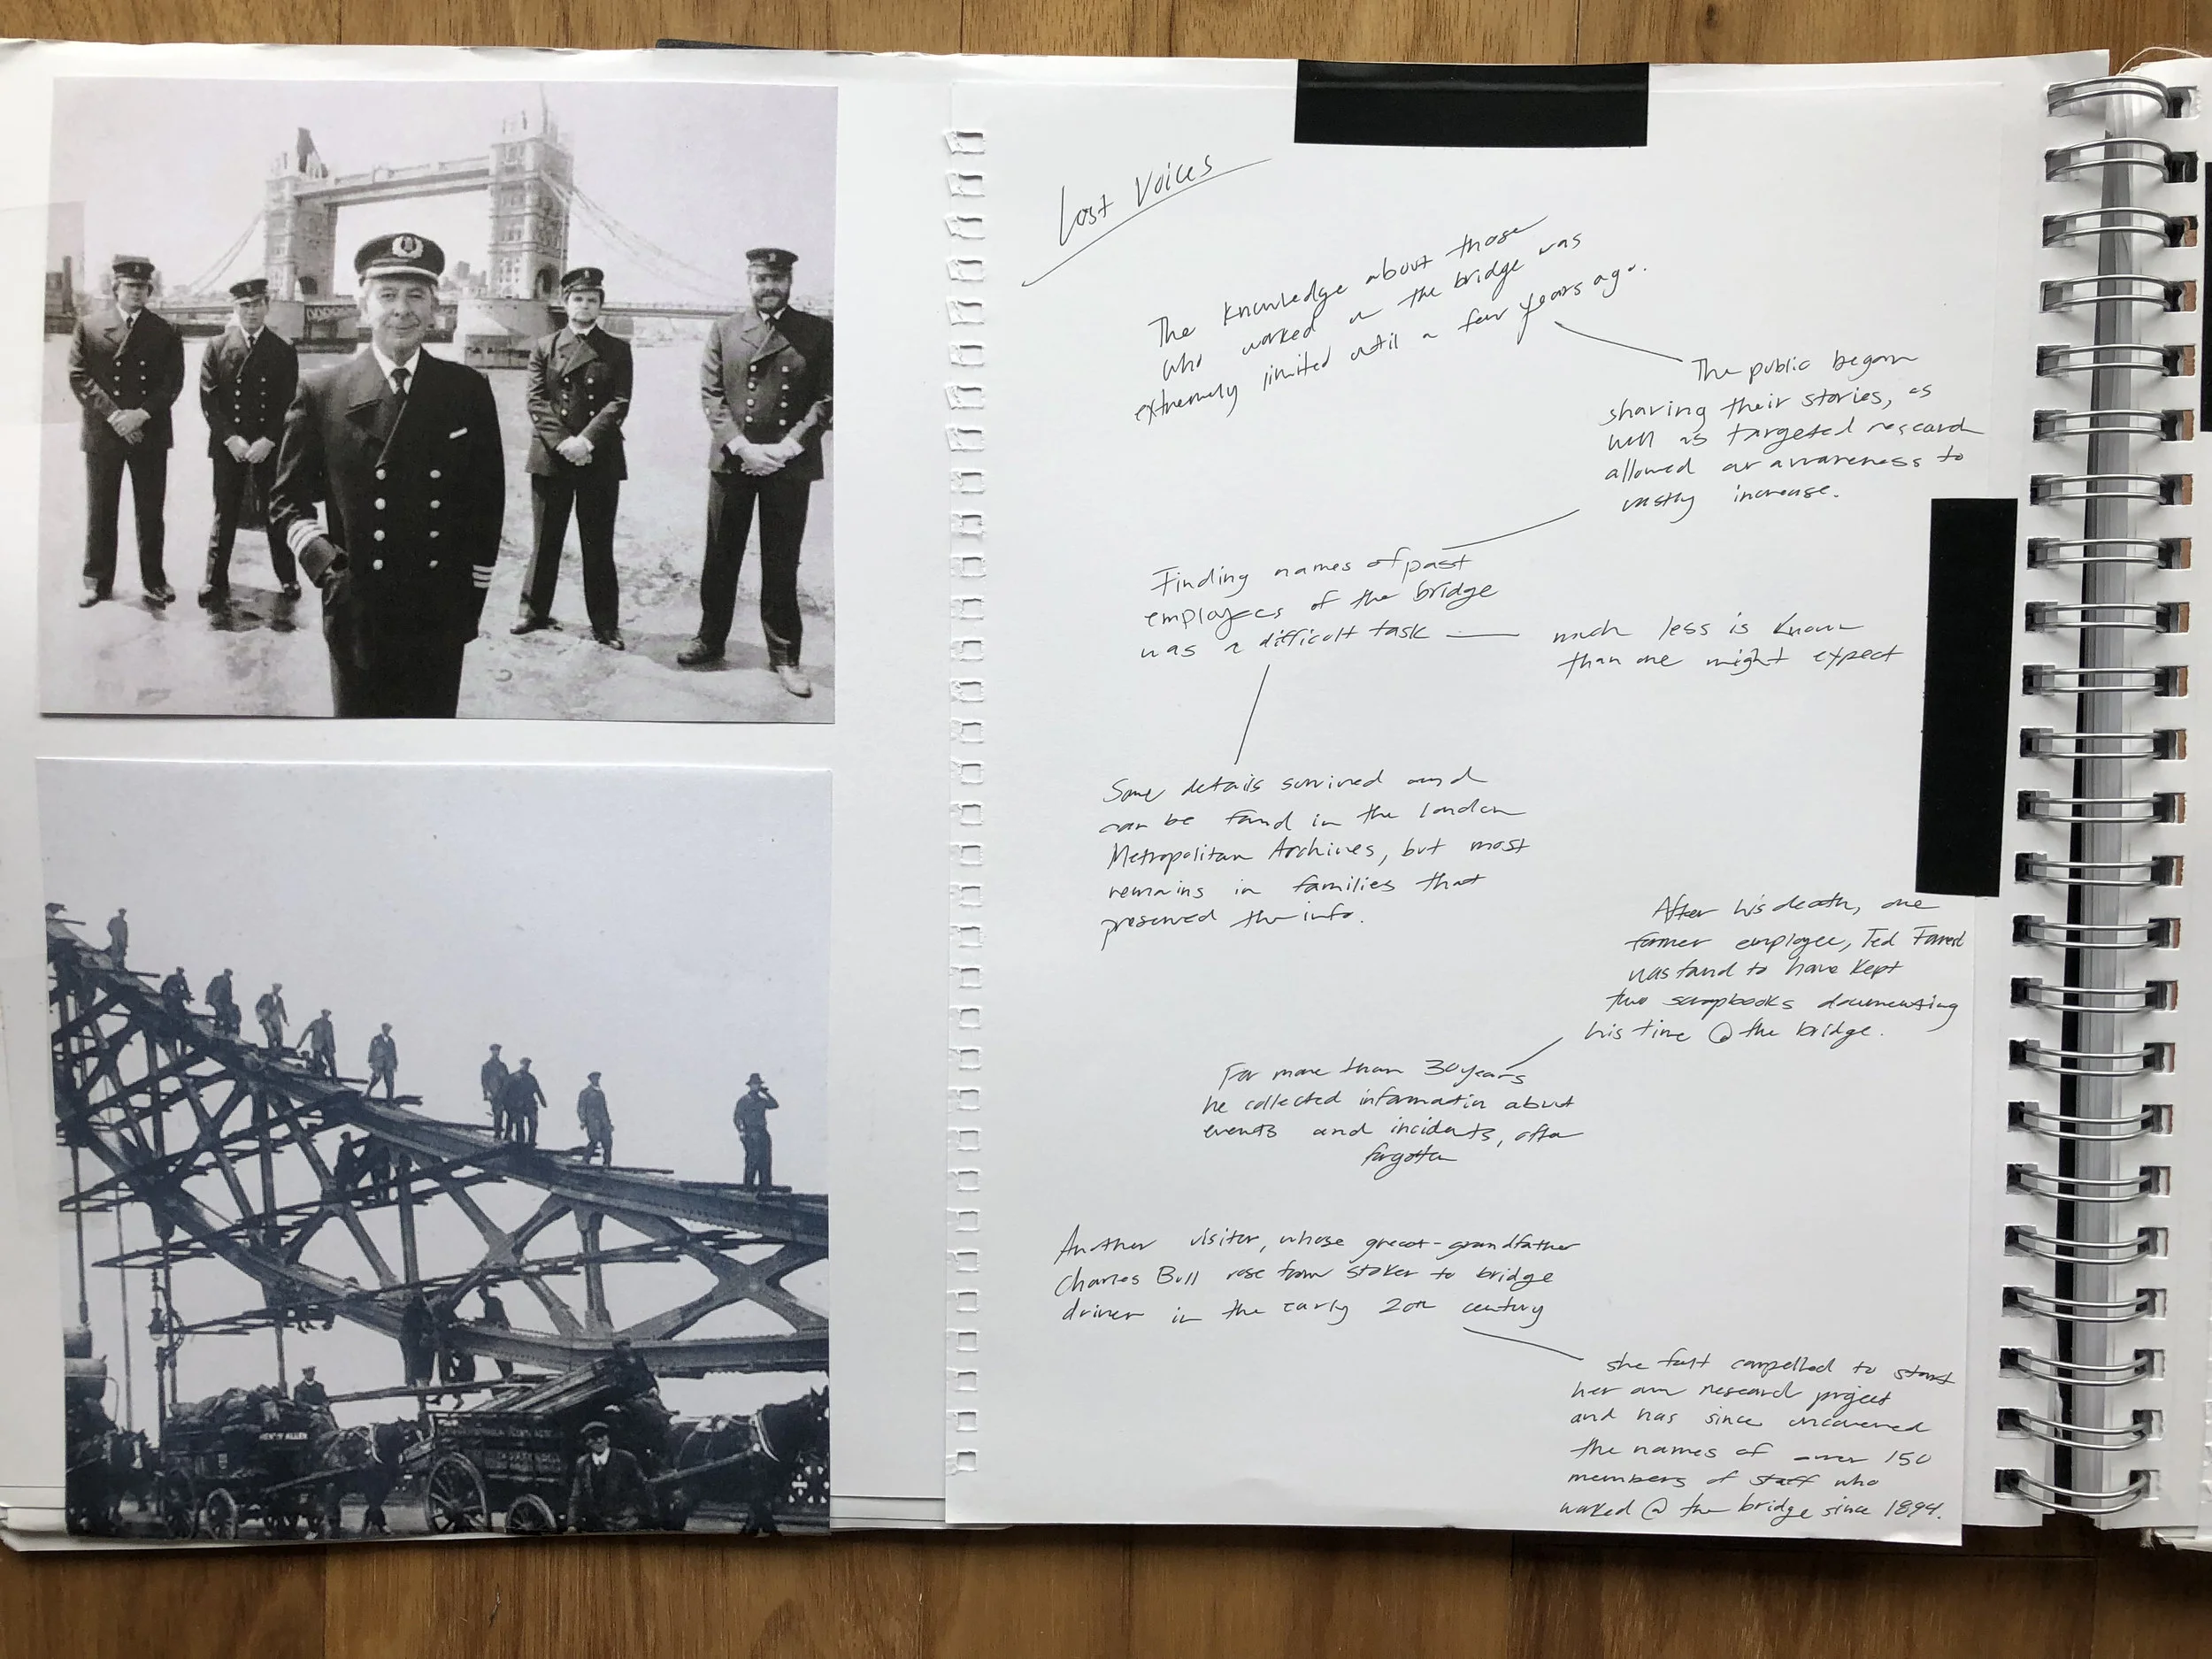 Lost Voices
The knowledge about those
who worked on the bridge was
extremely limited until a few years ago.
The public began
sharing their stories, as
well as targeted research
allowed our awareness to
vastly increase.
Finding names of past
employees of the bridge
was a difficult task
much less is known
than one might expect
Some details survived and
can be found in the London
Metropolitan Archives, but most
remains in families that
preserved the info.
After his death, one
former employee, Ted
was found to have kept
two scrapbooks documenting
his time @ the bridge.
For more than 30 years
he collected information about
events and incidents, often
forgotten
Another visitor, whose great-grandfather
Charles Bull rose from stoker to bridge
driver in the early 20th century
she felt compelled to start
her own research project
and has since uncovered
the names of over 150
members of staff who
worked @ the bridge since 1894.
HENRY ALLEN